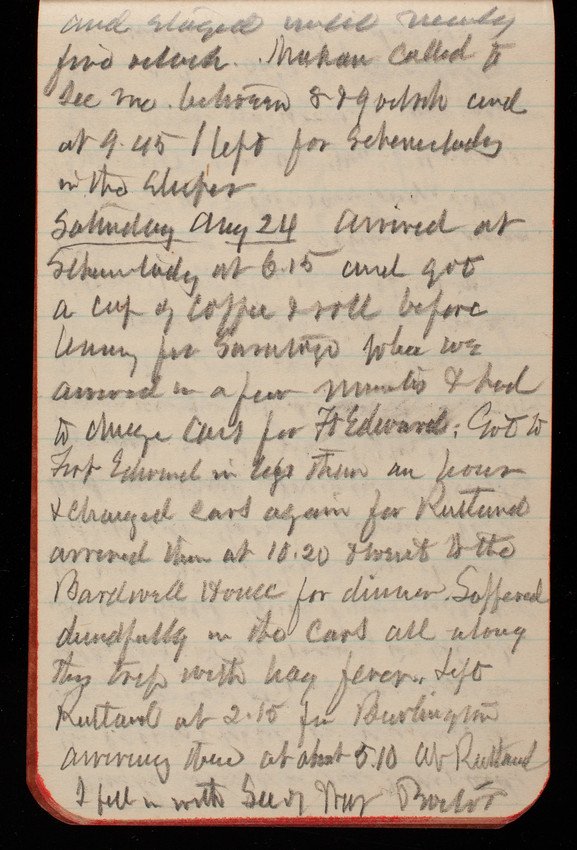 and stayed until nearly
five oclock. called to
see me between 8 & 9 oclock and
at 9.45 I left for Schenectady
in the sleeper
Saturday Aug 24 Arrived at
Schenectady at 6.15 and got
a cup of Coffee & roll before
leaving for Saratoga where we
arrived in a few minutes & had
to change cars for Ft Edward; Got to
Fort Edward in less than an hour
& changed cars again for Rutland
arrived there at 10.20 & went to the
Bardwell House for dinner. Suffered
dreadfully in the cars all along
this trip with hay fever. Left
Rutland at 2.15 for Burlington
arriving there at about 5.10 At Rutland
I fell in with Sec of War Proctor